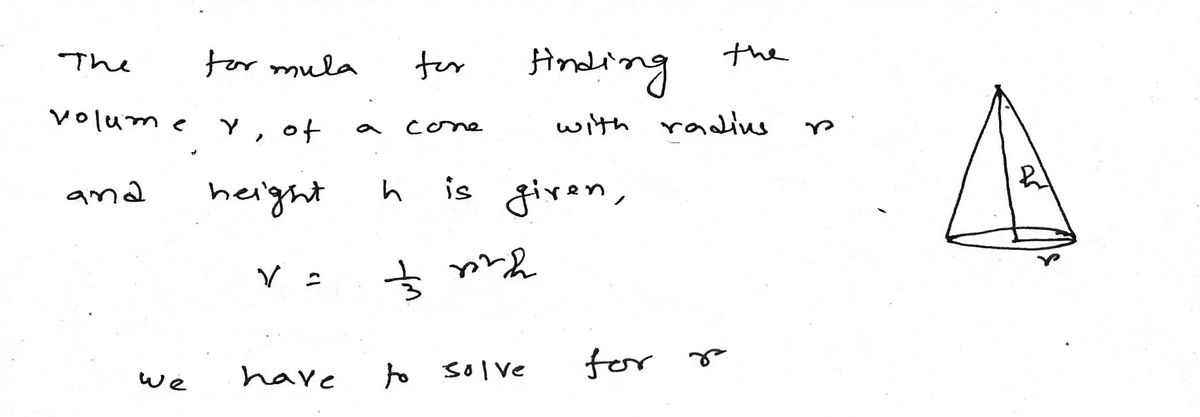 The formula for finding the
volume V, of a cone with radius r
and height h is given,
h
V = 1/3 r²h
r
we have to solve for r